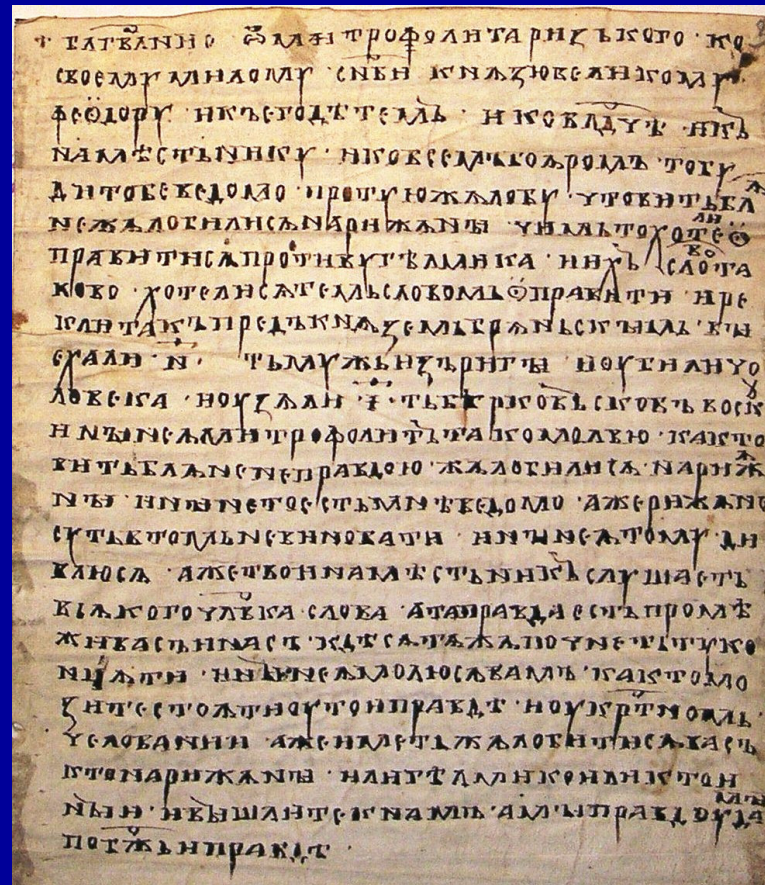 + бл҃гв҃лнию ѿ митрофолита ризького · ко
своему милому сн҃ви кнѧзю великому ·
феѡдору · и къ его дѣтемъ · и ко влд҃чѣ · и къ
намѣстьнику · и ко всемъ боѧромъ · тобу
ди тобе ведомо · про ту ю жѧлобу · что витьблѧ
не жѧлобилисѧ на рижѧны · чимь то хотели ѿ
правитисѧ противу гѣлмика · и ихъ слово та
ково · хотелисѧ темь словомь ѿправити · и ре
кли такъ предъ кнѧземь брѧньскымь · вы
ехали · н҃ · тъ мужь изъ ригы · и оубили чо
ловека · и оузѧли · і҃ · тъ берковьсковъ воску
и ныне ѧ митрофолитъ тако молвю · како то
витьблѧне неправдою жѧлобилисѧ · на рижѧ
ны · и ныне то есть мнѣ ведомо · аже рижѧне
суть в томь не виновати · и ныне ѧ тому ди
влюсѧ · аже твои намѣстьникъ слушаеть
всѧкого чл҃вка слова · а та правда есть промѣ
жи васъ и насъ · кдѣ сѧ тѧжѧ почнеть ту ко
нцѧти · и ныне ѧ молюсѧ вамъ · како то мо
зите стоѧти оу тои правдѣ · и оу кр҃тномь ·
челованьи · аже иметь жѧлобитисѧ васъ
кто на рижѧны · или гѣлмико или кто и
ныи · и вы шлите к намъ · а мы правду дамы
по б҃жьи правдѣ ·